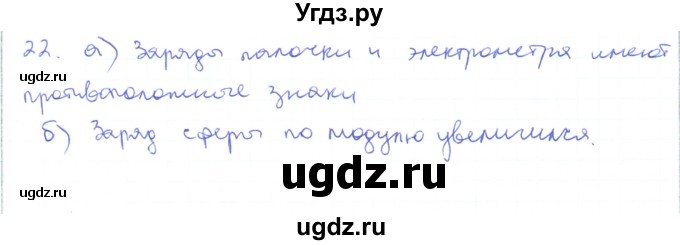 Угдз.ру
22. а) Заряды палочки и электрометра имеют
противоположные знаки
б) Заряд сферы по модулю увеличился.
ugdz.ru
ugdz.ru
ugdz.ru
ugdz.ru
ugdz.ru
ugdz.ru